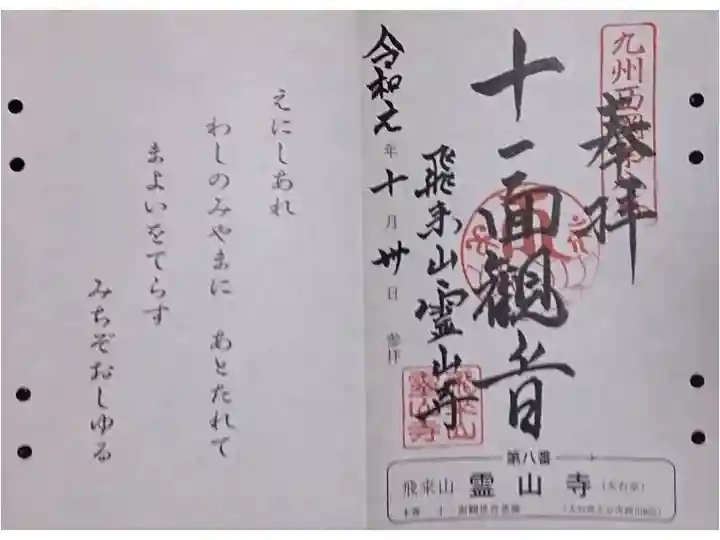 奉拝
十一面観音
飛来山霊山寺
令和元年十月卅日 参拝
えにしあれ
わしのみやまに あとたれて
まよいをてらす
みちぞおしゆる
第八番
飛来山 霊山寺